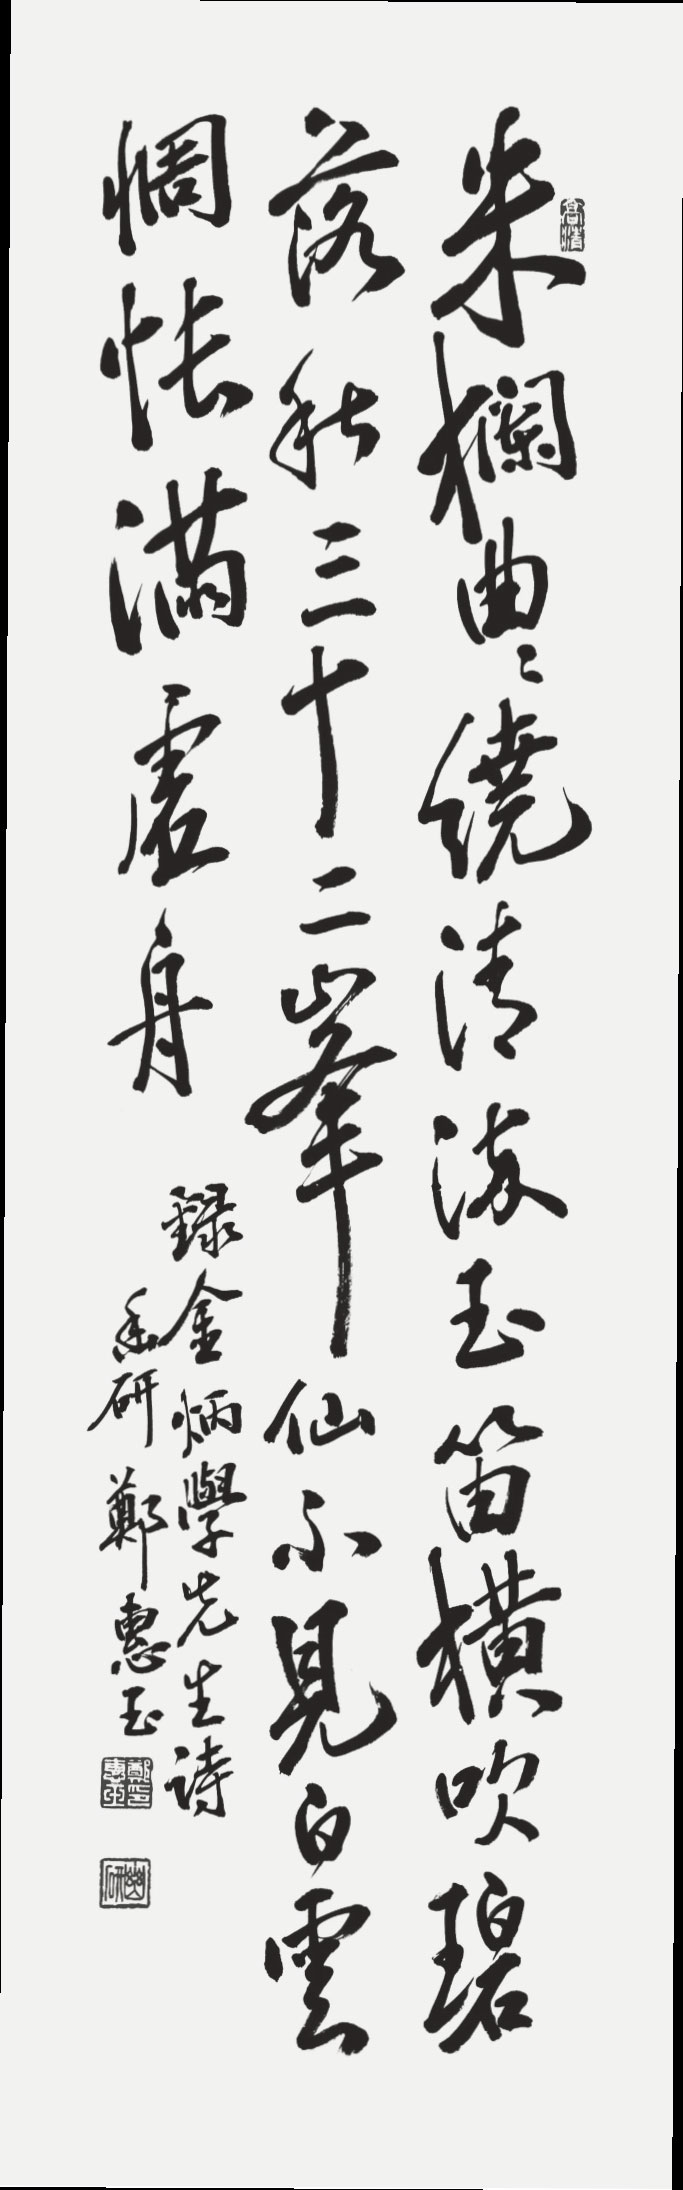 朱欄曲〻繞清流玉笛橫吹碧
落秋三十二峯仙不見白雲
惆悵滿虛舟
錄金炳學先生詩
幽研 鄭惠玉
幽研